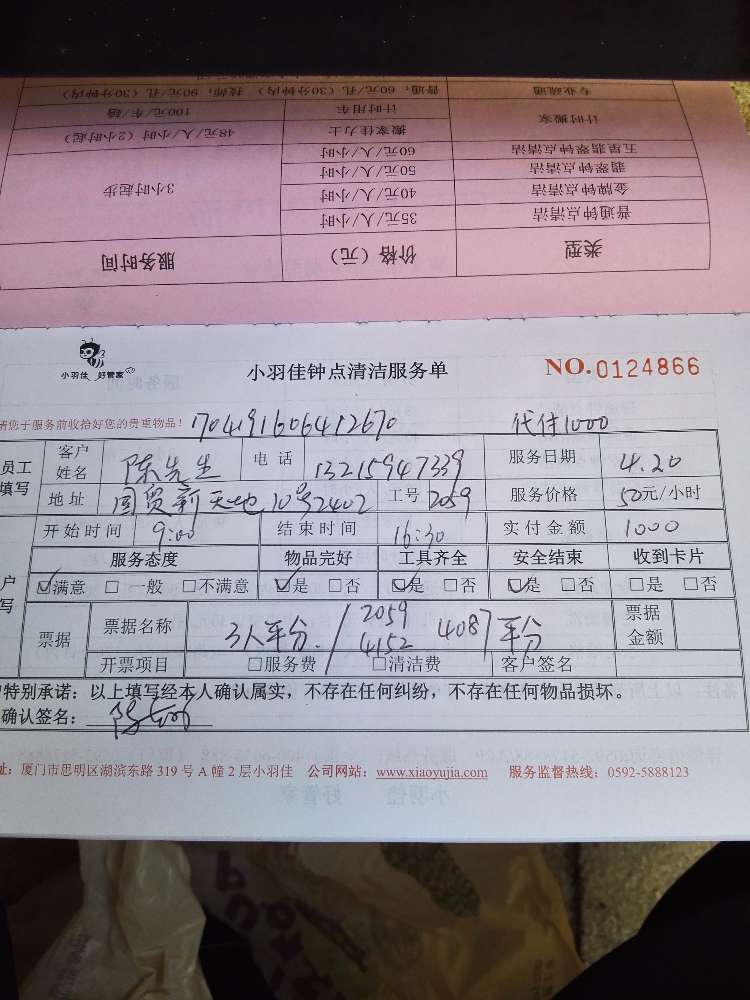 专业疏通 普通：60元/孔（30分钟内） 技师：90元/孔（30分钟内）
计时搬家 计时用车 100元/车/趟
搬家佳力士 48元/人/小时（2小时起）
五星翡翠钟点清洁 60元/人/小时 3小时起步
翡翠钟点清洁 50元/人/小时
金牌钟点清洁 40元/人/小时
普通钟点清洁 35元/人/小时
类型 价格（元） 服务时间
小羽佳 好管家 小羽佳钟点清洁服务单 NO.0124866
您于服务前收拾好您的贵重物品！ 1704191606412670 代付1000
员工填写 客户姓名 陈先生 电话 13215947339 服务日期 4.20
地址 国贸新天地10号2402 工号 2059 服务价格 50元/小时
开始时间 9:00 结束时间 16:30 实付金额 1000
服务态度 物品完好 工具齐全 安全结束 收到卡片
户写 ☑满意 □一般 □不满意 ☑是 □否 ☑是 □否 ☑是 □否 □是 □否
票据 票据名称 3人平分. / 2059 4152 4087 平分 票据金额
开票项目 □服务费 □清洁费 客户签名
特别承诺：以上填写经本人确认属实，不存在任何纠纷，不存在任何物品损坏。
确认签名：
址：厦门市思明区湖滨东路319号A幢2层小羽佳 公司网站：www.xiaoyujia.com 服务监督热线：0592-5888123